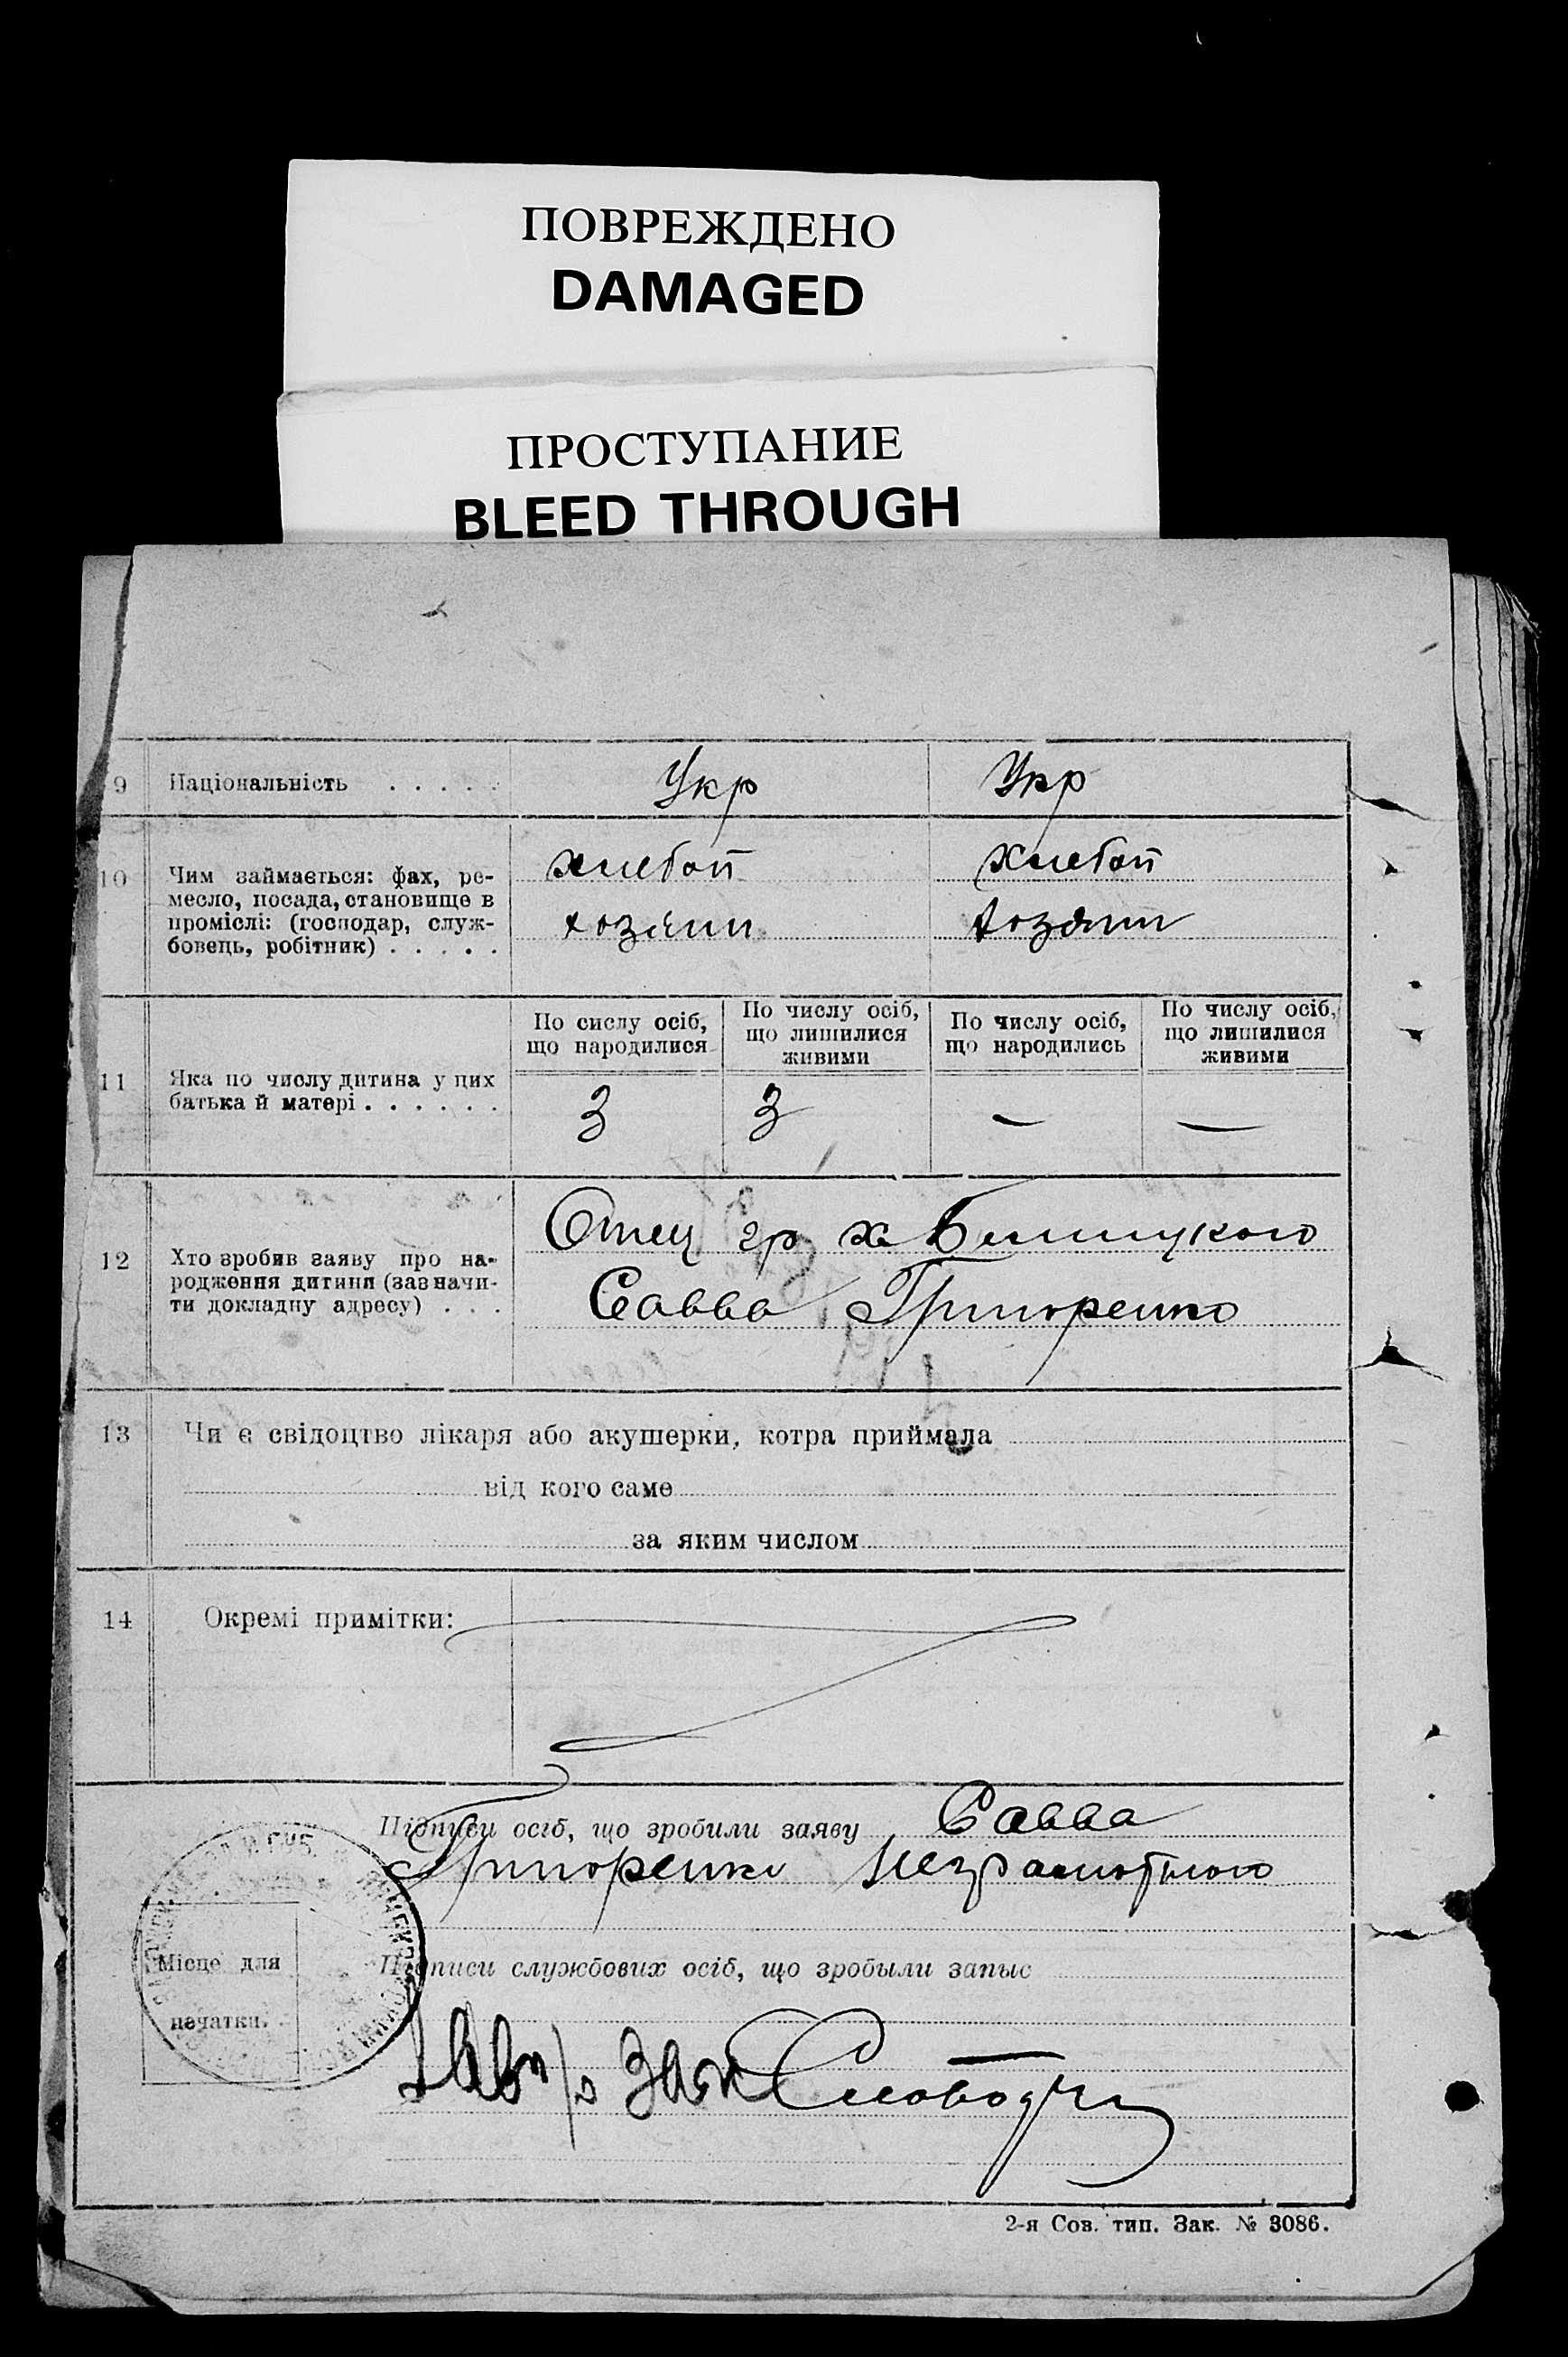 ПОВРЕЖДЕНО
DAMAGED
ПРОСТУПАНИЕ
BLEED THROUGH
9 Національність . . . . . Укр Укр
10 Чим займається: фах, ре-
месло, посада, становище в
проміслі: (господар, служ-
бовець, робітник) . . . . .
хлебоп хлебоп
хозяин хозяин
11 Яка по числу дитина у цих
батька й матері . . . . . .
По сислу осіб,
що народилися
По числу осіб,
що лишилися
живими
По числу осіб,
що народились
По числу осіб,
що лишилися
живими
3 3 — —
12 Хто зробив заяву про на-
родження дитини (зазначи-
ти докладну адресу) . . .
Отец гр х
Савва Григоренко
13 Чи є свідоцтво лікаря або акушерки, котра приймала
від кого саме
за яким числом
14 Окремі примітки:
Підписи осіб, що зробили заяву Савва
Григоренко неграмотного
Місце для
печатки.
Підписи службових осіб, що зробыли запыс
2-я Сов. тип. Зак. № 3086.